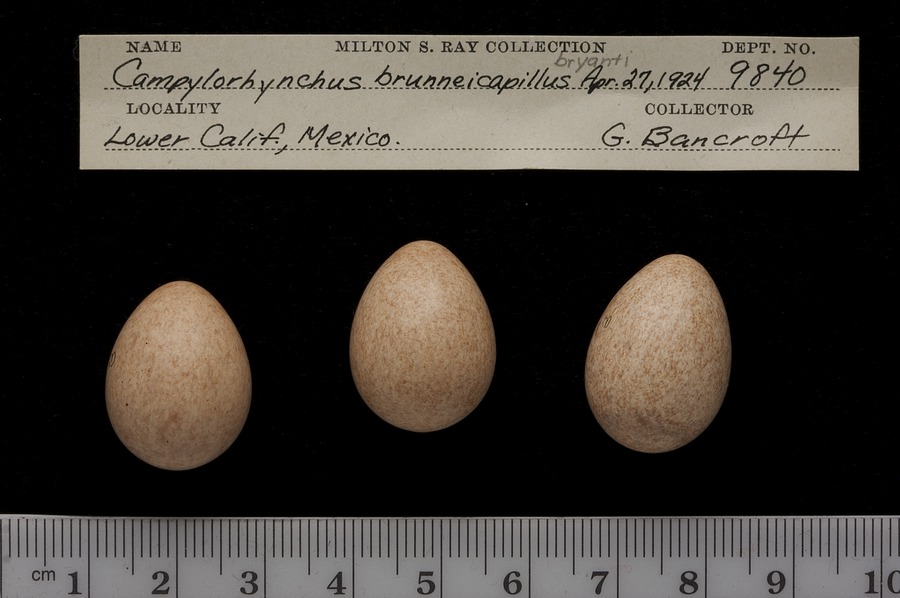 NAME MILTON S. RAY COLLECTION DEPT. NO.
bryanti
Campylorhynchus brunneicapillus Apr. 27, 1924 9840
LOCALITY COLLECTOR
Lower Calif., Mexico. G. Bancroft
cm 1 2 3 4 5 6 7 8 9 10